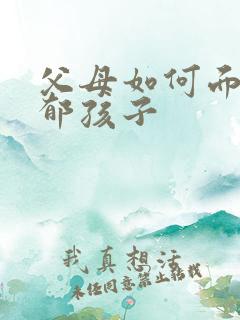 父母如何而
郁孩子
我真想活
未经同意禁止转载